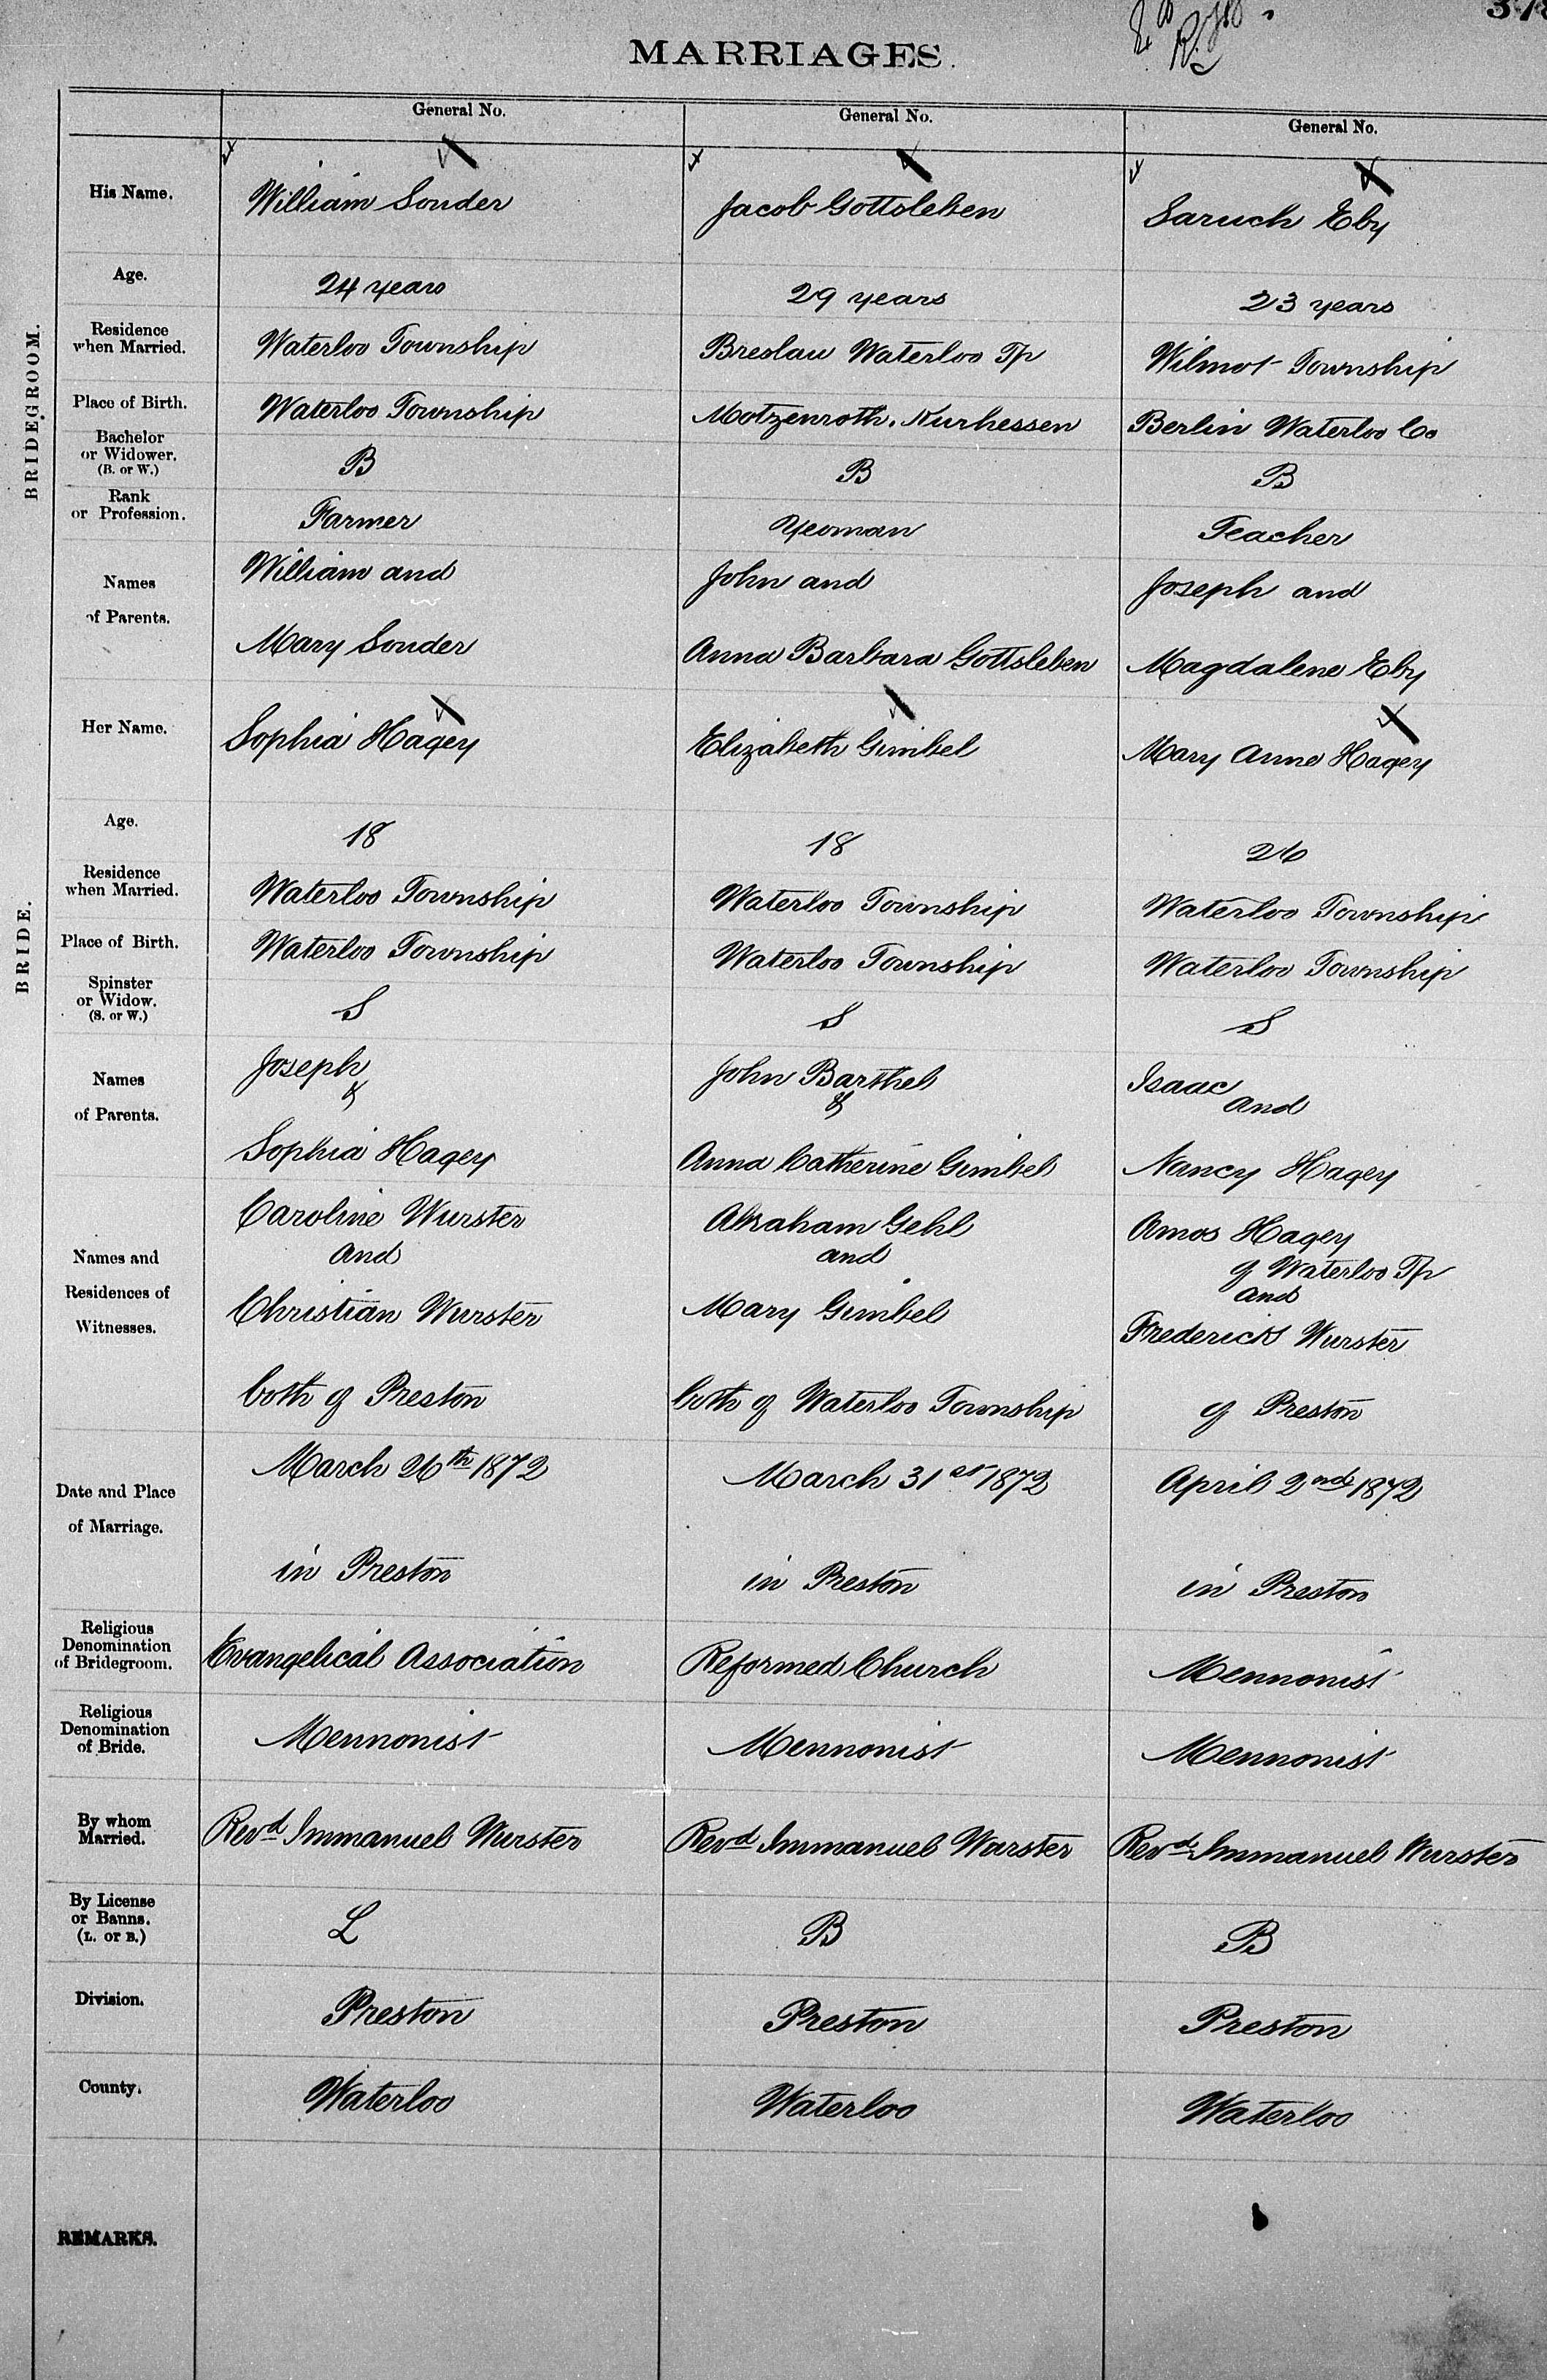 MARRIAGES.
General No. General No. General No.
His Name. William Souder Jacob Gottsleben Saruch Eby
BRIDEGROOM.
Age. 24 years 29 years 23 years
Residence when Married. Waterloo Township Breslau Waterloo Tp Wilmot Township
Place of Birth. Waterloo Township Motzenroth, Kurhessen Berlin Waterloo Co
Bachelor or Widower. (B. or W.) B B B
Rank or Profession. Farmer Yeoman Teacher
Names William and John and Joseph and
of Parents. Mary Souder Anna Barbara Gottsleben Magdalene Eby
Her Name. Sophia Hagey Elizabeth Gimbel Mary Anne Hagey
BRIDE.
Age. 18 18 26
Residence when Married. Waterloo Township Waterloo Township Waterloo Township
Place of Birth. Waterloo Township Waterloo Township Waterloo Township
Spinster or Widow. (S. or W.) S S S
Names Joseph & John Barthel & Isaac and
of Parents. Sophia Hagey Anna Catherine Gimbel Nancy Hagey
Names and Caroline Wurster Abraham Gehl Amos Hagey
and and of Waterloo Tp and
Residences of Christian Wurster Mary Gimbel Frederick Wurster
Witnesses. both of Preston both of Waterloo Township of Preston
Date and Place March 26th 1872 March 31st 1872 April 2nd 1872
of Marriage. in Preston in Preston in Preston
Religious Denomination of Bridegroom. Evangelical Association Reformed Church Mennonist
Religious Denomination of Bride. Mennonist Mennonist Mennonist
By whom Married. Revd Immanuel Wurster Revd Immanuel Wurster Revd Immanuel Wurster
By License or Banns. (L. or B.) L B B
Division. Preston Preston Preston
County. Waterloo Waterloo Waterloo
REMARKS.